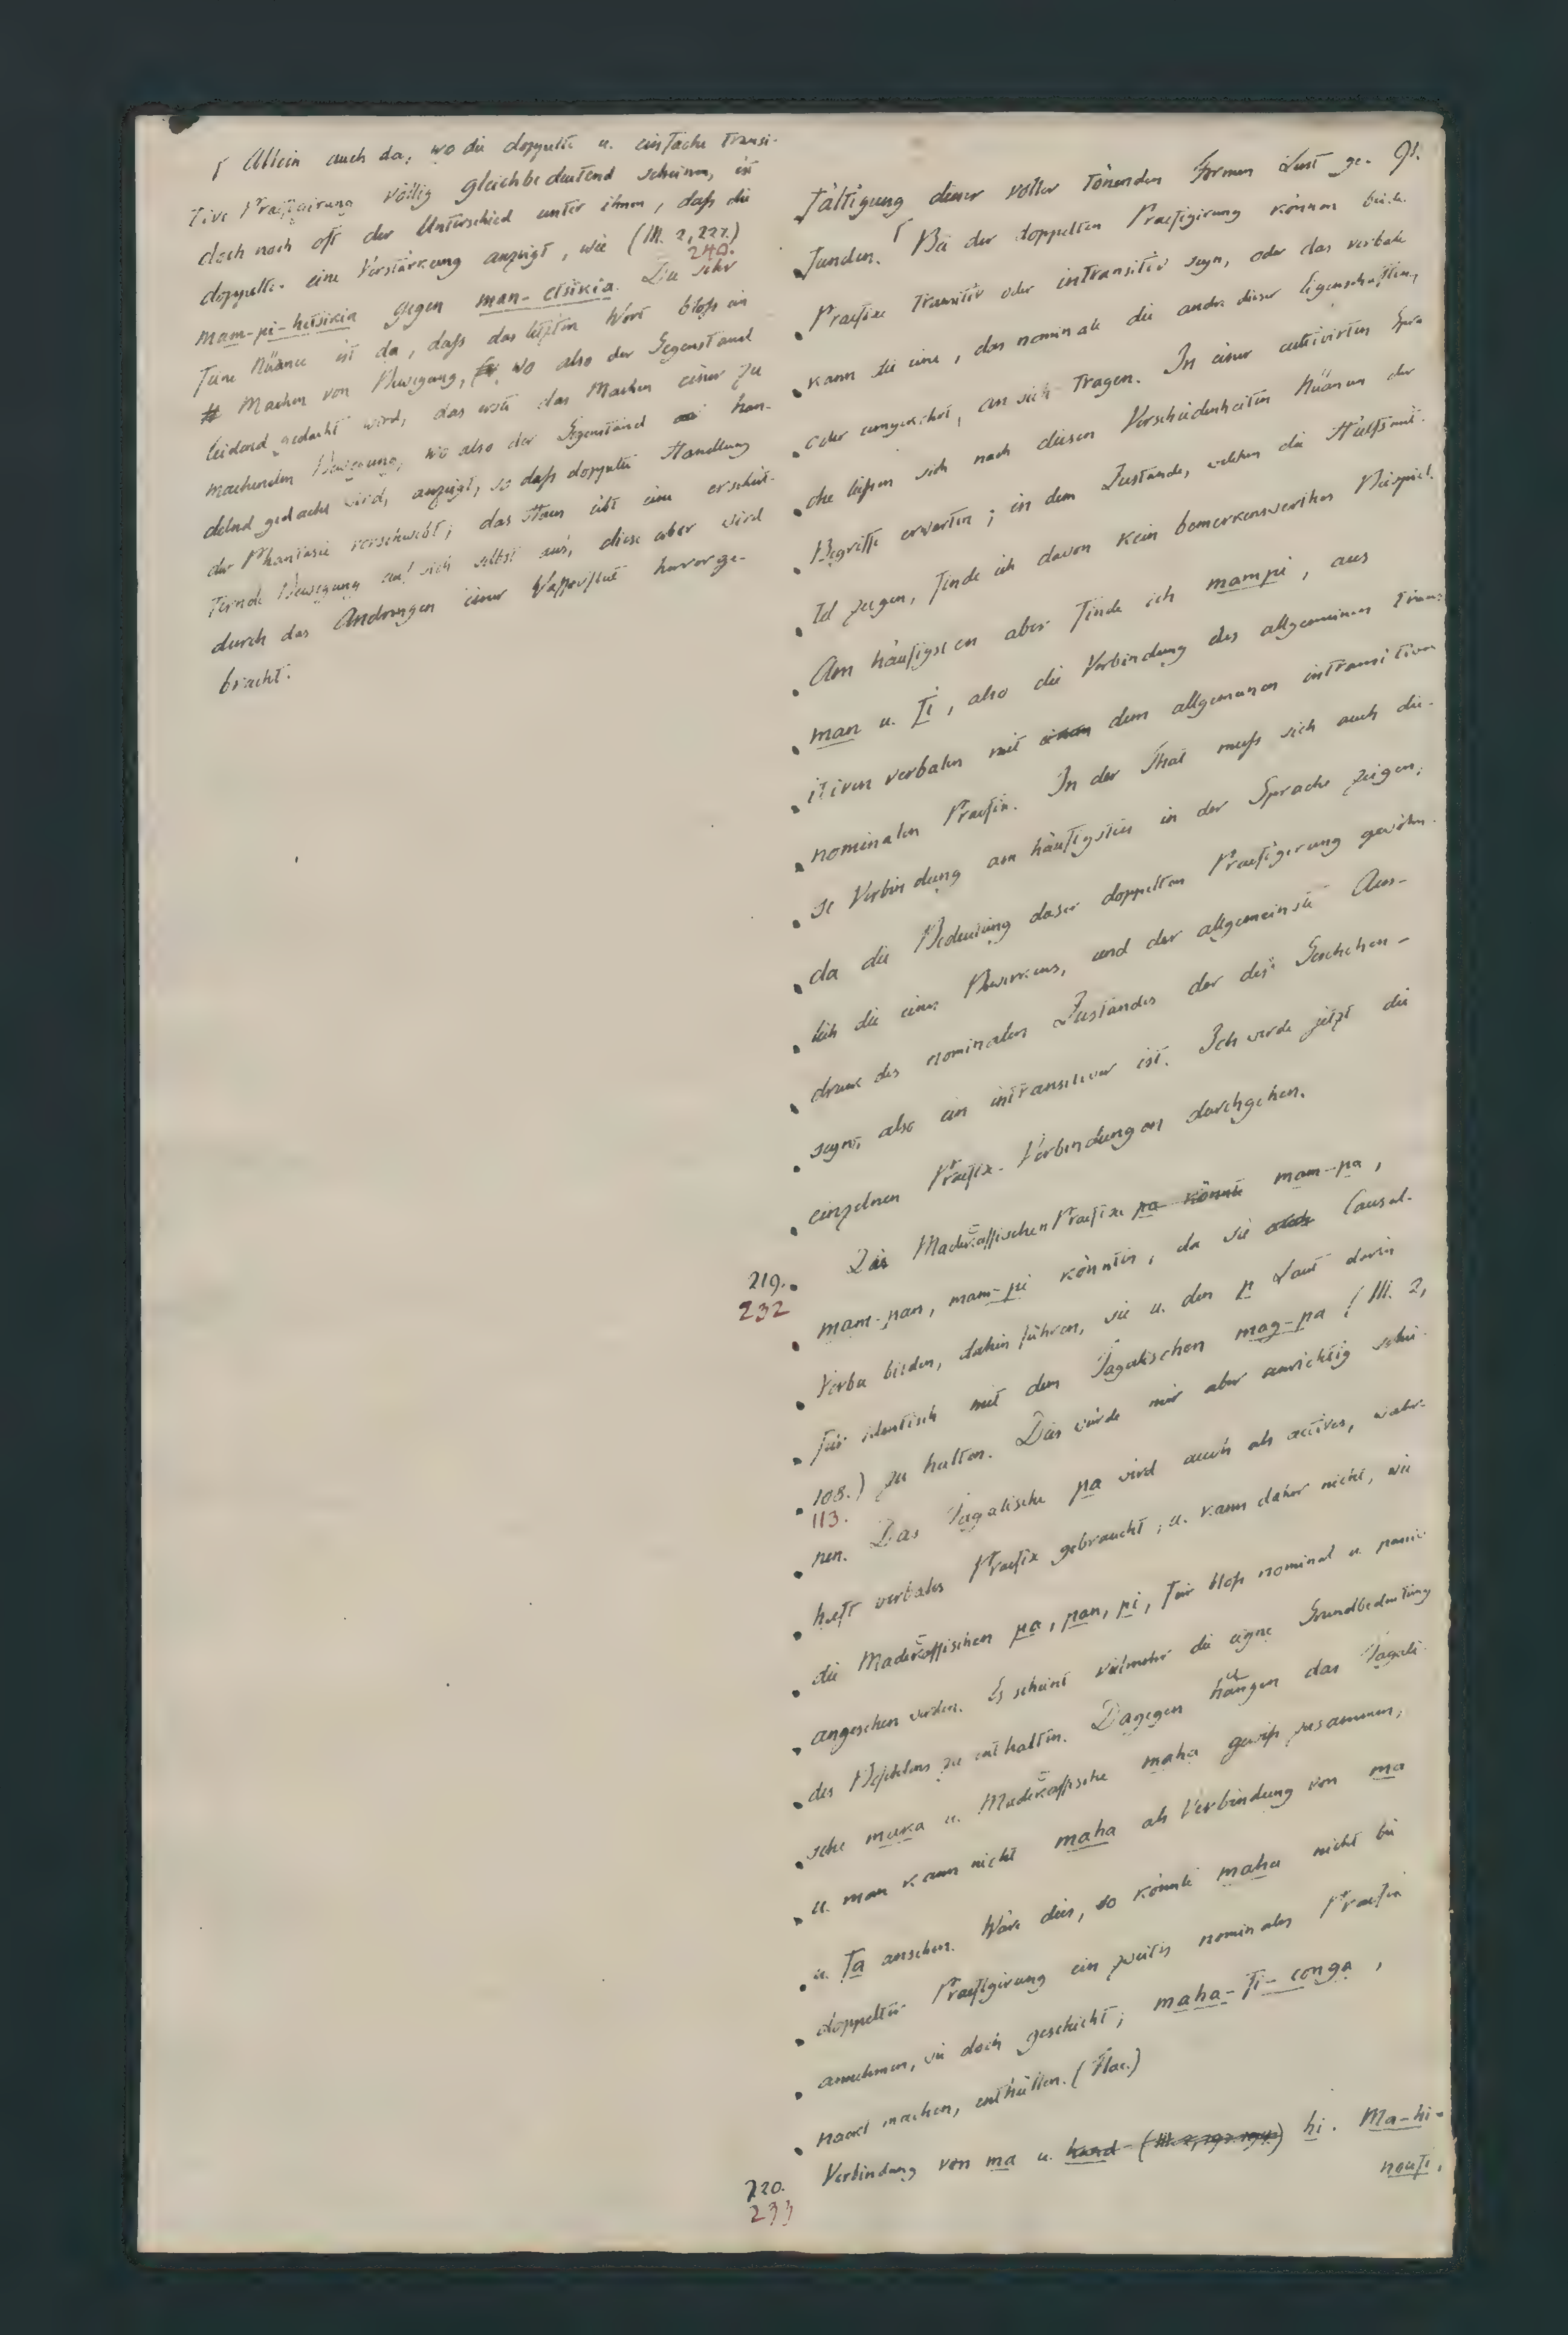 ⌈ Allein auch da, wo die doppelte u. einfache transi-
tive Praefigirung völlig gleichbedeutend scheinen, ist
doch noch oft der Unterschied unter ihnen, daß die
doppelte eine Verstärkung anzeigt, wie (III. 2, 227.)
240.
mam-pi-hetsikia gegen man-etsikia. Die sehr
feine Nüance ist da, daß das letztere Wort bloß ein
Machen von Bewegung, wo also der Gegenstand
leidend gedacht wird, das erste das Machen einer zu
machenden Bewegung, wo also der Gegenstand han-
delnd gedacht wird, anzeigt, so daß doppelte Handlung
der Phantasie vorschwebt; das Haus übt eine erschüt-
ternde Bewegung auf sich selbst aus, diese aber wird
durch das Andrängen einer Wasserflut hervorge-
bracht.
fältigung dieser voller tönenden Formen Lust ge-
funden. ⌈ Bei der doppelten Praefigirung können beide
Praefixe transitiv oder intransitiv seyn, oder das verbale
kann die eine, das nominale die andre dieser Eigenschaften,
oder umgekehrt, an sich tragen. In einer cultivirten Spra
che ließen sich nach diesen Verschiedenheiten Nüancen der
Begriffe erwarten; in dem Zustande, welchen die Hülfsmit-
tel zeigen, finde ich davon kein bemerkenswerthes Beispiel.
Am häufigsten aber finde ich mampi, aus
man u. fi, also die Verbindung des allgemeinen trans-
itiven verbalen mit einem dem allgemeinen intransitiven
nominalen Praefix. In der That muß sich auch die-
se Verbindung am häufigsten in der Sprache zeigen,
da die Bedeutung dieser doppelten Praefigirung gewöhn-
lich die eines Bewirkens, und der allgemeinste Aus-
druck des nominalen Zustandes der des Geschehen-
seyns, also ein intransitiver ist. Ich werde jetzt die
einzelnen Praefix-Verbindungen durchgehen.
219.
232
Die Madecassischen Praefixe pa könnte mam-pa,
mam-pan, mam-pi könnten, da sie auch Causal-
Verba bilden, dahin führen, sie u. den p Laut darin
für identisch mit dem Tagalischen mag-pa (III. 2,
108.) zu halten. Dies würde mir aber unrichtig schei-
113.
nen. Das Tagalische pa wird auch als actives, wahr-
haft verbales Praefix gebraucht, u. kann daher nicht, wie
die Madecassischen pa, pan, pi, für bloß nominal u. passiv
angesehen werden. Es scheint vielmehr die eigne Grundbedeutung
des Befehlens zu enthalten. Dagegen hängen das Tagali-
sche maka u. Madecassische maha gewiß zusammen,
u. man kann nicht maha als Verbindung von ma
u. fa ansehen. Wäre dies, so könnte maha nicht bei
doppelter Praefigirung ein zweites nominales Praefix
annehmen, wie doch geschieht; maha-fi-conga,
nackt machen, enthüllen. (Flac.)
220.
233
Verbindung von ma u. hand (III. 2, 192. 194.) hi. Ma-hi-
noufi,